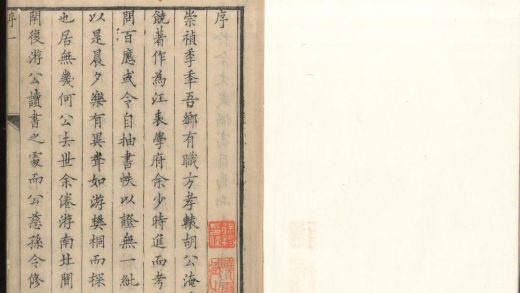 序
崇禎季秊吾鄉有職方孝轅胡公海
饒著作為江表學府余少時進而考
問百應或令自抽書帙以證無一紕
以是晨夕樂有異聲如游樊桐而探
也居無幾何公去世余倦游南間
閒復游公讀書之處而公慈孫令修
序一